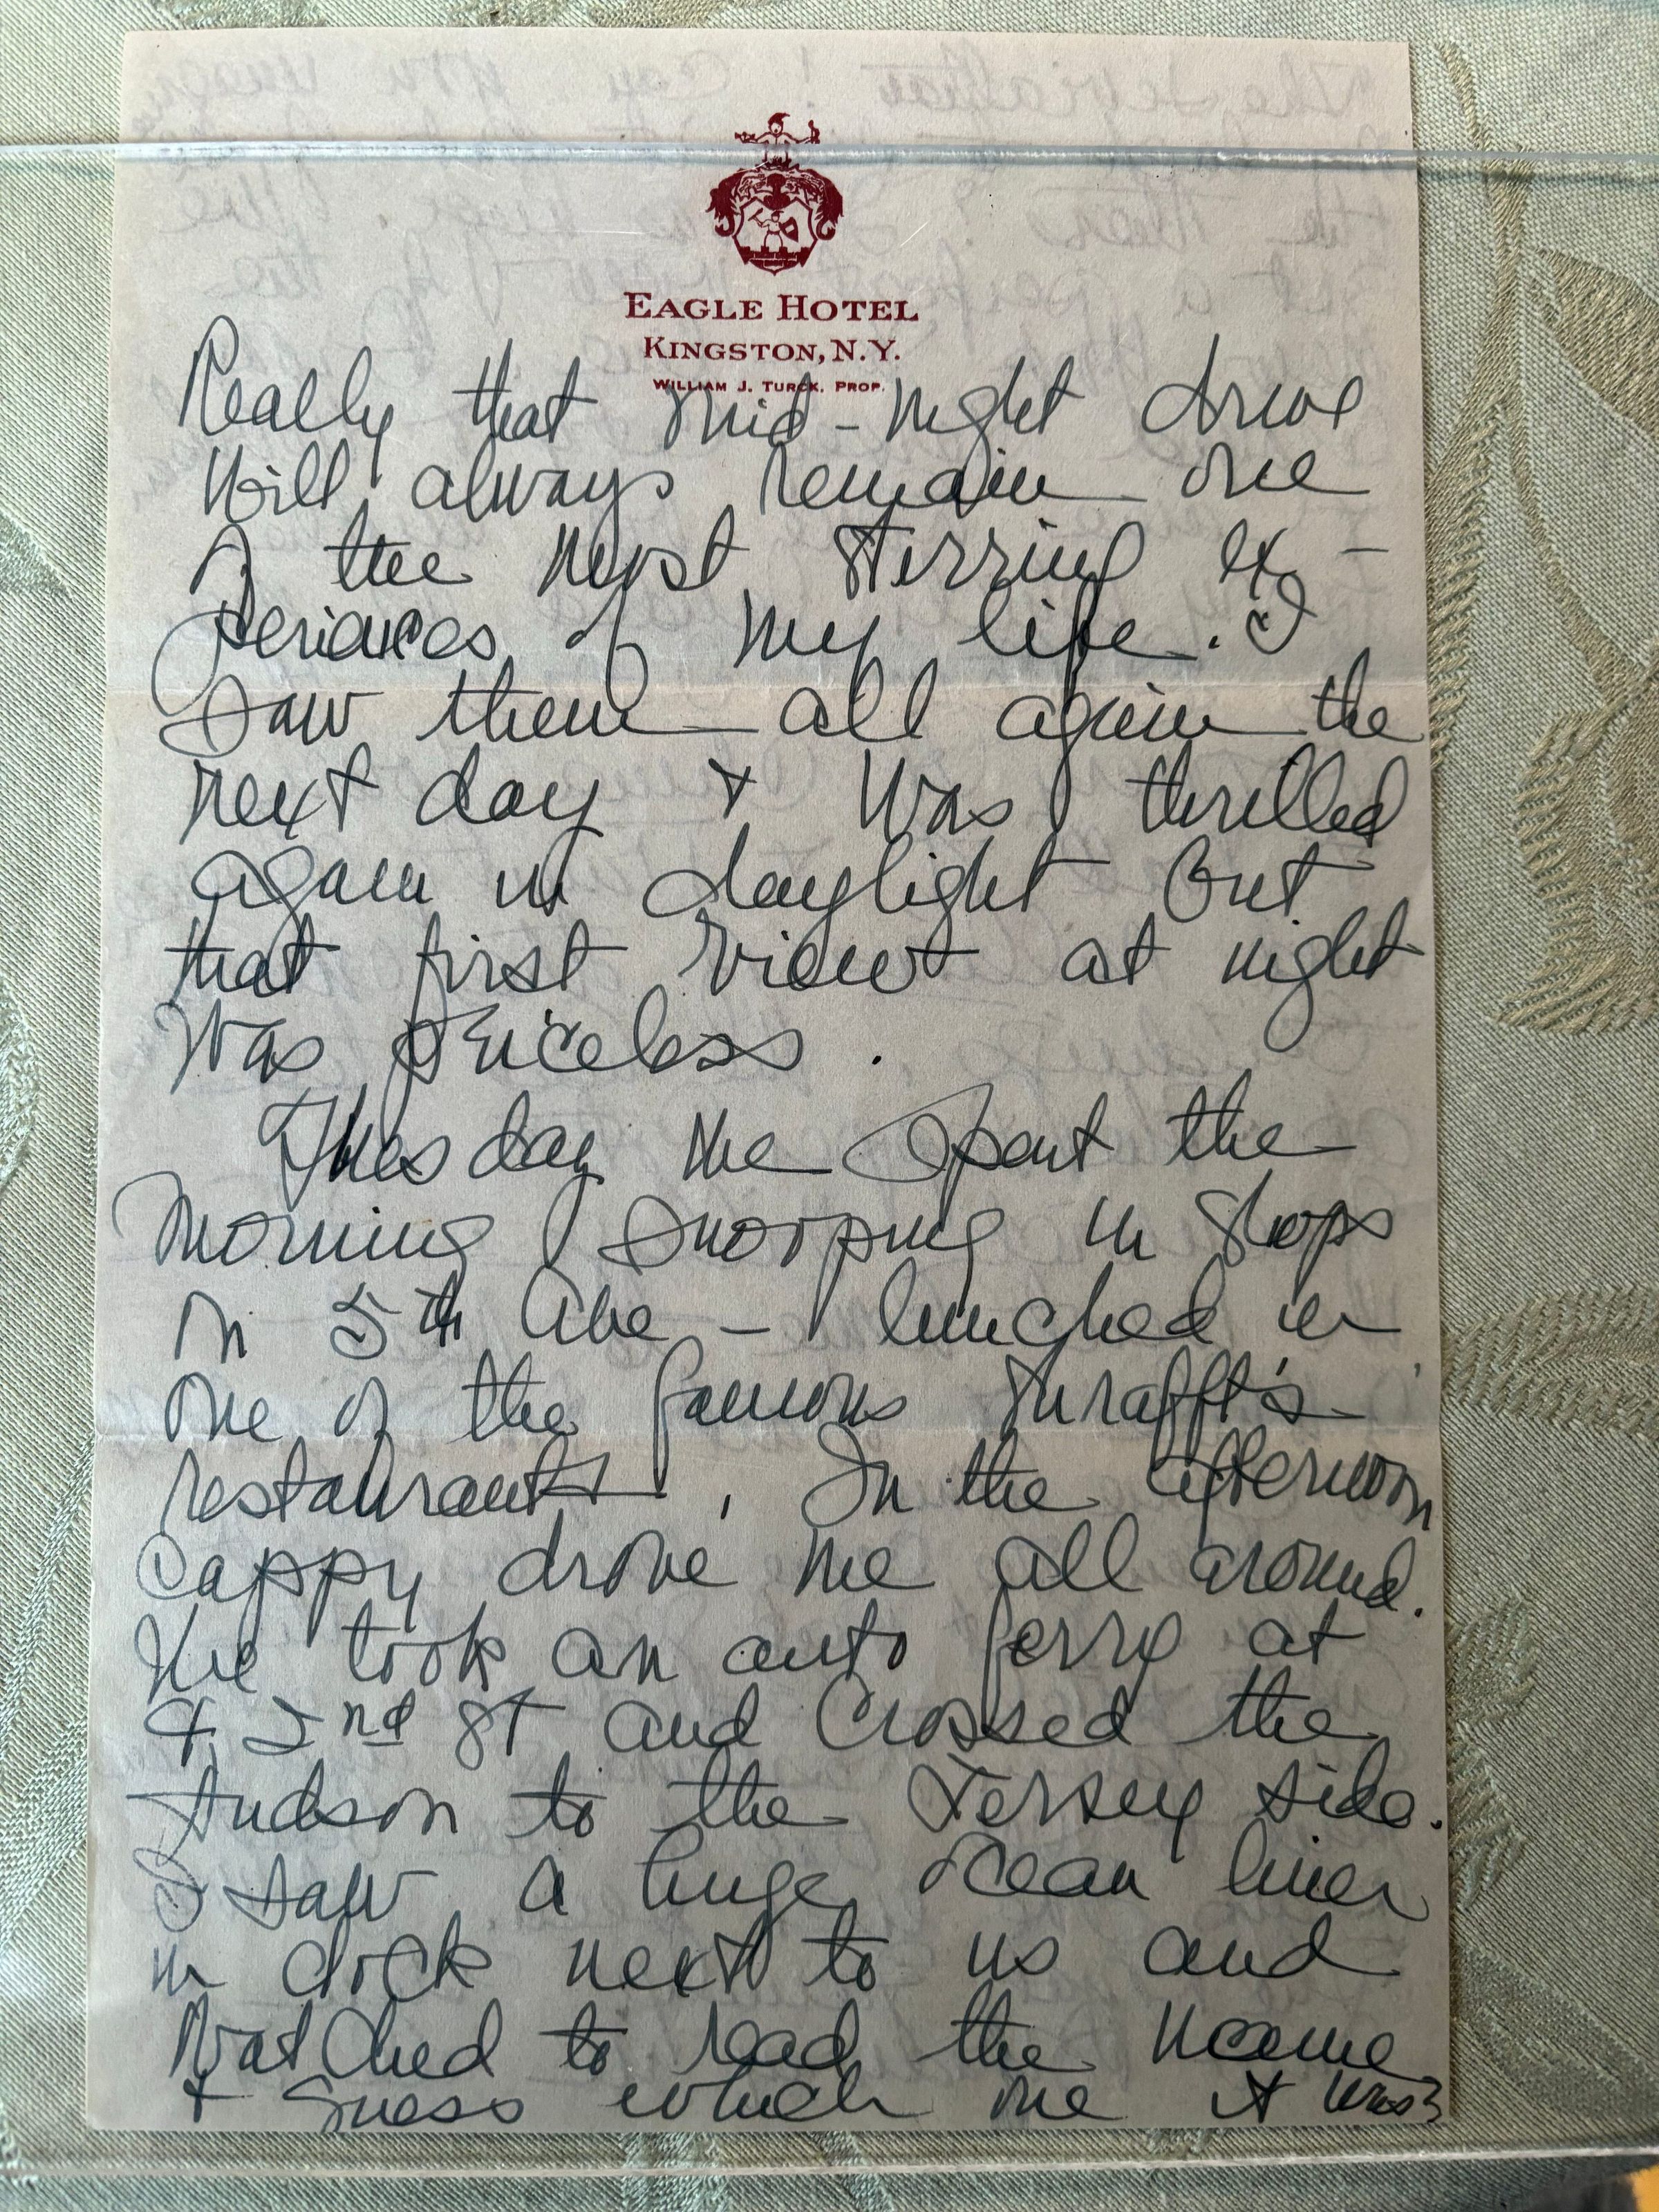 EAGLE HOTEL
KINGSTON, N.Y.
WILLIAM J. TURCK, PROP.
Really that mid-night drive
will always remain one
of the most stirring ex-
periences of my life. I
saw them all again the
next day & was thrilled
again in daylight but
that first view at night
was priceless.
Tuesday we spent the
morning snooping in shops
on 5th Ave - lunched in
one of the famous Shrafft's
restaurants. In the afternoon
Cappy drove me all around.
We took an auto ferry at
42nd St and crossed the
Hudson to the Jersey side.
I saw a huge ocean liner
in dock next to us and
watched to read the name
& guess which one it was?